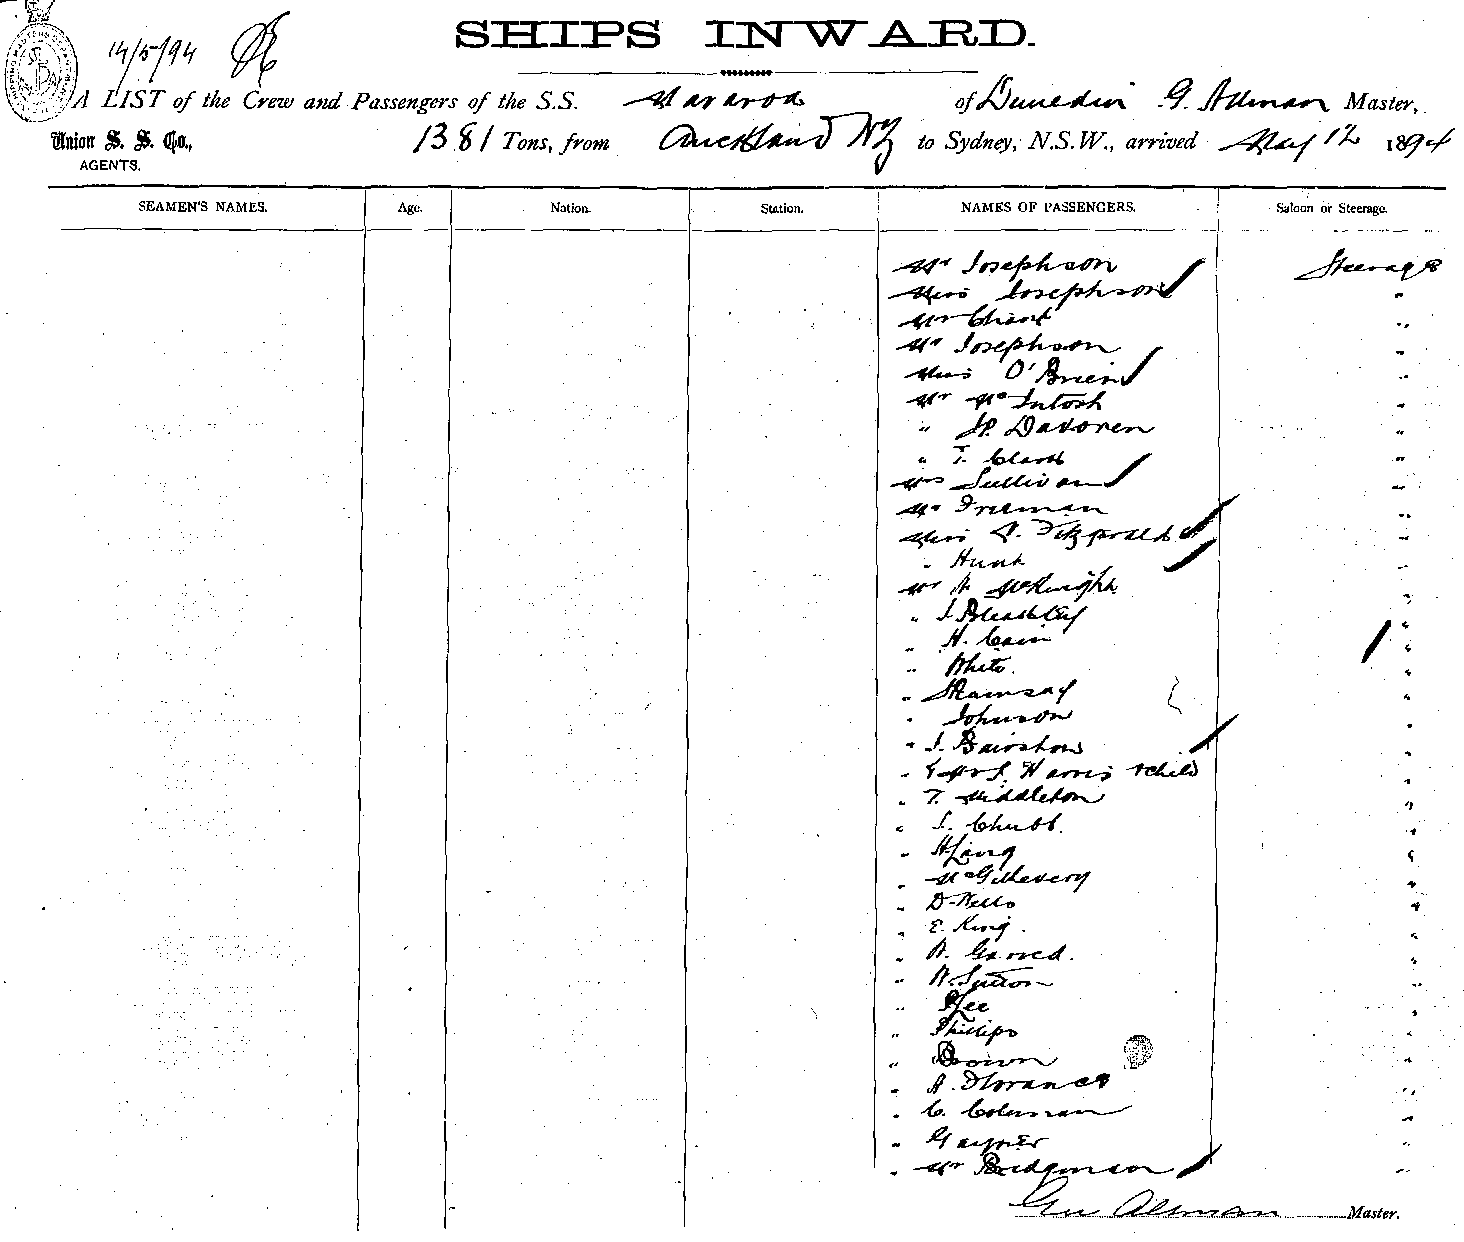 14/5/94
SHIPS INWARD.
A LIST of the Crew and Passengers of the S.S. Wararoa of Dunedin G. Allman Master,
Union S. S. Co., 1381 Tons, from Auckland NZ to Sydney, N.S.W., arrived May 12 1894
AGENTS.
SEAMEN'S NAMES. Age. Nation. Station. NAMES OF PASSENGERS. Saloon or Steerage.
Mr Josephson Steerage
Miss Josephson "
Mr Chant "
Mr Josephson "
Miss O'Brien "
Mr McIntosh "
" Davoren "
" T. Clark "
Mrs Sullivan "
Mr Freeman "
Miss Fitzgerald "
" Hunt "
Mr A McKnight "
" J. "
" H. Cain "
" White. "
" Ramsay "
" Johnson "
" J. Bairstow "
" & Mrs J. Harris & child "
" T. Middleton "
" J. Chubb. "
" H Laing "
" McGilvery "
" D. Wells "
" E. King. "
" W. Garred. "
" W. Sutton "
" Lee "
" Phillips "
" Brown "
" A. Florance "
" C. Coleman "
" Gaynier "
" Mr Bridgman "
Geo Allman Master.